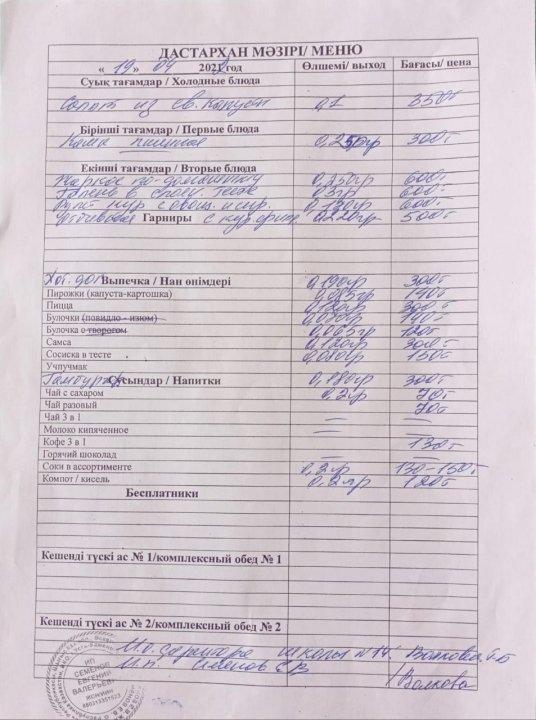 ДАСТАРХАН МӘЗІРІ/ МЕНЮ
« 19 » 04 202 год Өлшемі/ выход Бағасы/ цена
Суық тағамдар / Холодные блюда
Салат из св. капусты 0,1 350т
Бірінші тағамдар / Первые блюда
Каша пшенная 0,250гр 300т
Екінші тағамдар / Вторые блюда
Жаркое по-домашнему 0,250гр 600т
в тесте 600т
Рулет кур с овощ. и сыр. 0,130гр 600т
Гарниры с кур. 0,220гр 500т
Хот-дог Выпечка / Нан өнімдері 0,190гр 300т
Пирожки (капуста-картошка) 0,085гр 140т
Пицца 0,120гр 300т
Булочки (повидло - изюм) 140т
Булочка с творогом 0,065гр 120т
Самса 0,120гр 300т
Сосиска в тесте 0,080гр 150т
Учпучмак
Гамбургер Сусындар / Напитки 0,180гр 300т
Чай с сахаром 0,2гр 70т
Чай разовый 70т
Чай 3 в 1 —
Молоко кипяченное — —
Кофе 3 в 1 130т
Горячий шоколад — —
Соки в ассортименте 0,2гр 130-150т
Компот / кисель 0,2гр 120т
Бесплатники
Кешенді түскі ас № 1/комплексный обед № 1
Кешенді түскі ас № 2/комплексный обед № 2
И.О. директора школы №14. Волкова
И.п. Семенов Е.В Волкова
ИП
СЕМЕНОВ
ЕВГЕНИЙ
ВАЛЕРЬЕВИЧ
ЖСН/ИИН